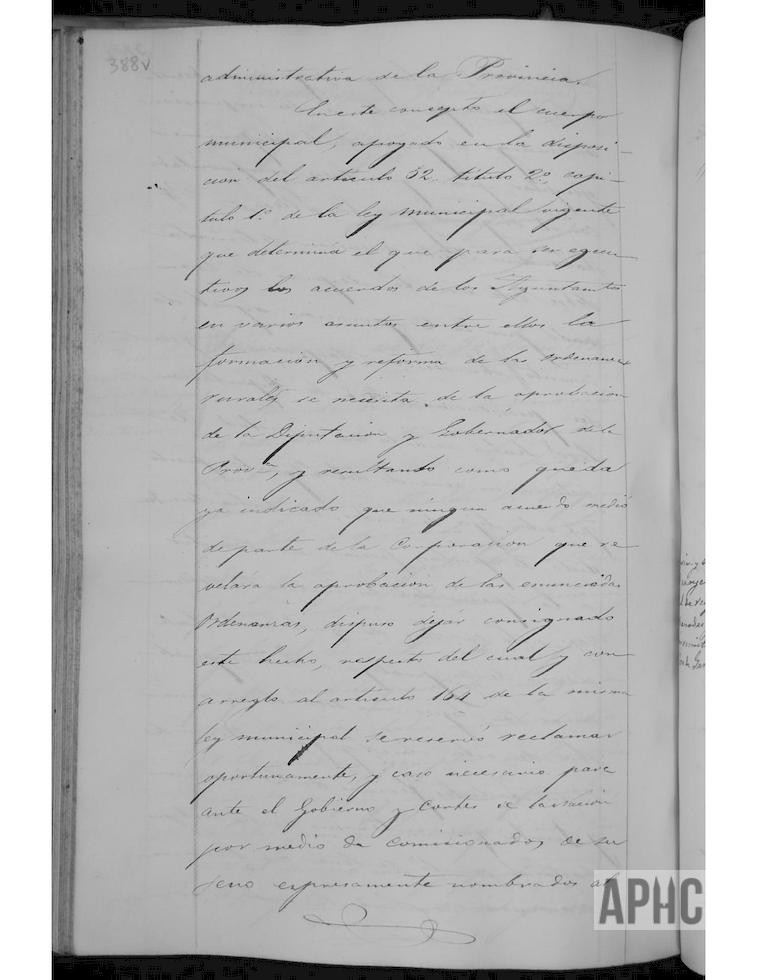 388v
administrativa de la Provincia.
En este concepto el cuerpo
municipal, apoyado en la disposi-
cion del articulo 52, titulo 2º, capi-
tulo 1º de la ley municipal vigente
que determina el que para ser ejecu-
tivos los acuerdos de los Ayuntamtos
en varios asuntos entre ellos la
formacion y reforma de las ordenanzas
rurales se necesita de la aprobacion
de la Diputacion y Gobernador de la
Prova, y resultando como queda
ya indicado que ningun acuerdo medió
de parte de la Corporacion que re
velára la aprobacion de las enunciadas
Ordenanzas, dispuso dejar consignado
este hecho, respecto del cual y con
arreglo al articulo 164 de la misma
ley municipal se reservó reclamar
oportunamente, y caso necesario para
ante el Gobierno y Cortes de la Nacion
por medio de comisionados de su
seno espresamente nombrados al
APHC